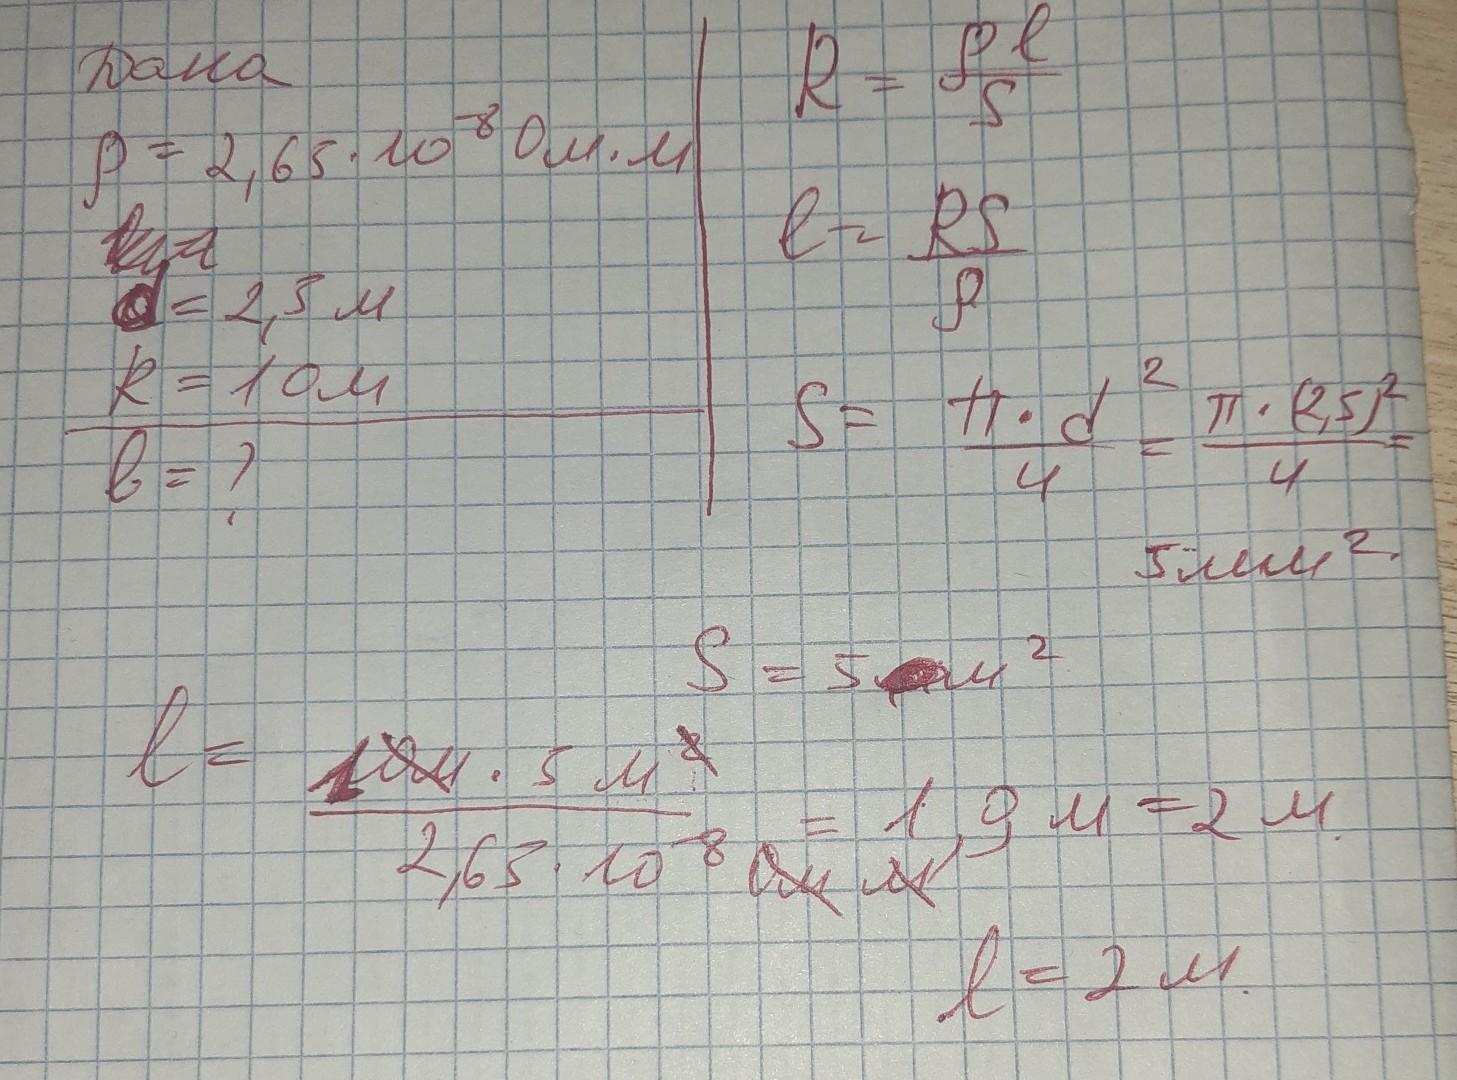 Дана
ρ = 2,65 · 10⁻⁸ Ом · м
d = 2,5 м
R = 1 Ом
l = ?
R = ρl/S
l = RS/ρ
S = π · d²/4 = π · (2,5)²/4 =
5 мм².
S = 5 м²
l = 1 Ом · 5 м²/2,65 · 10⁻⁸ Ом м = 1,9 м = 2 м.
l = 2 м.